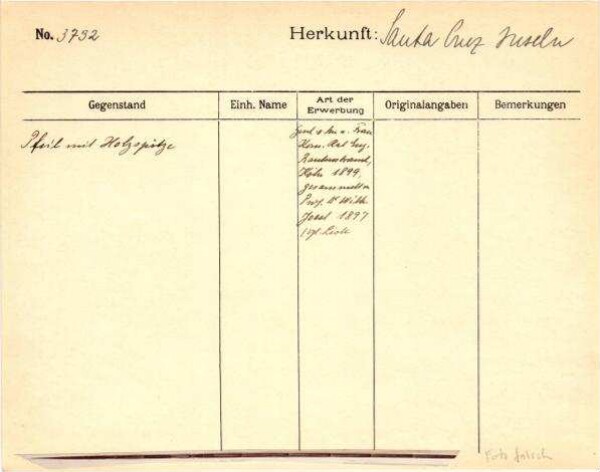 No. 3732 Herkunft: Santa Cruz Inseln
Gegenstand Einh. Name Art der Erwerbung Originalangaben Bemerkungen
Pfeil mit Holzspitze
Frau
Rautenstrauch,
Köln 1899,
gesammelt v.
Prof. Dr Wilh.
Joest 1897
Foto falsch